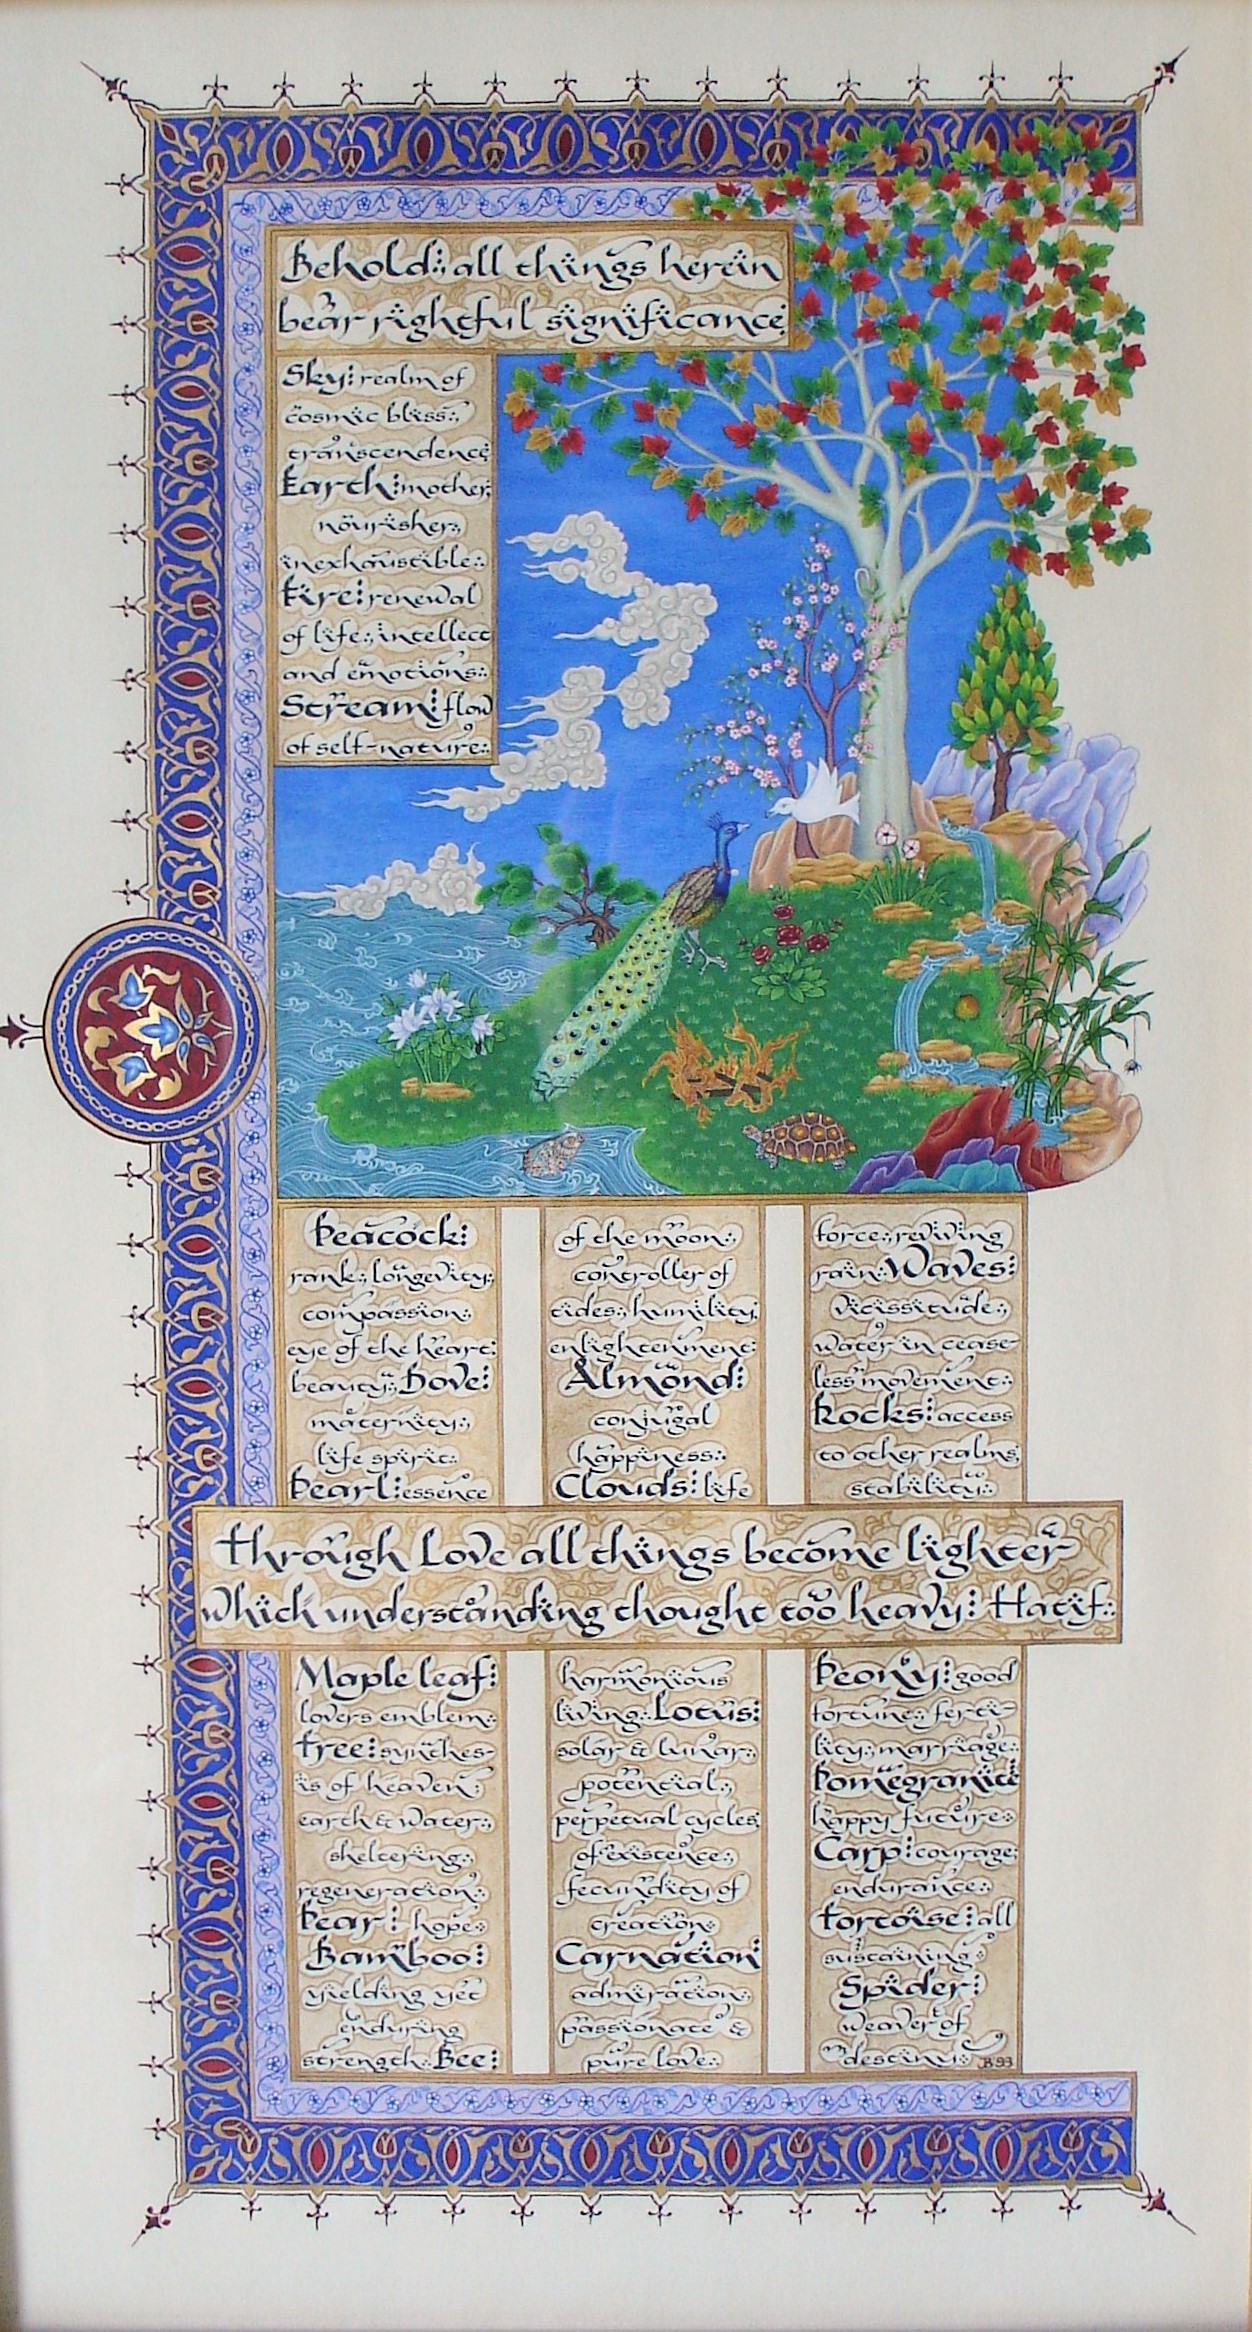 Behold: all things herein
bear rightful significance
Sky: realm of
cosmic bliss:,
transcendence
Earth: mother,
nourisher:,
inexhaustible:.
Fire: renewal
of life:, intellect
and emotions:.
Stream: flow
of self-nature:.
Peacock:
rank:, longevity:,
compassion:,
eye of the heart:
beauty:. Dove:
maternity:,
life spirit:.
Pearl: essence
of the moon:,
controller of
tides:, humility,
enlightenment:
Almond:
conjugal
happiness:.
Clouds: life
force:, reviving
rain:. Waves:
vicissitude:,
water in cease-
less movement:.
Rocks: access
to other realms,
stability:.
Through Love all things become lighter
which understanding thought too heavy: Hatif:.
Maple leaf:
lovers emblem:.
Tree: synthes-
is of heaven:
earth & water:,
sheltering:,
regeneration:.
Pear: hope:.
Bamboo:
yielding yet
enduring
strength:. Bee:
harmonious
living:. Lotus:
solar & lunar:,
potential:,
perpetual cycles
of existence:,
fecundity of
creation:.
Carnation:
admiration:,
passionate &
pure love:.
Peony: good
fortune:, ferti-
lity:, marriage:.
Pomegranite
happy future:.
Carp: courage,
endurance:.
Tortoise: all
sustaining:.
Spider:
weaver of
destiny:. JB '93